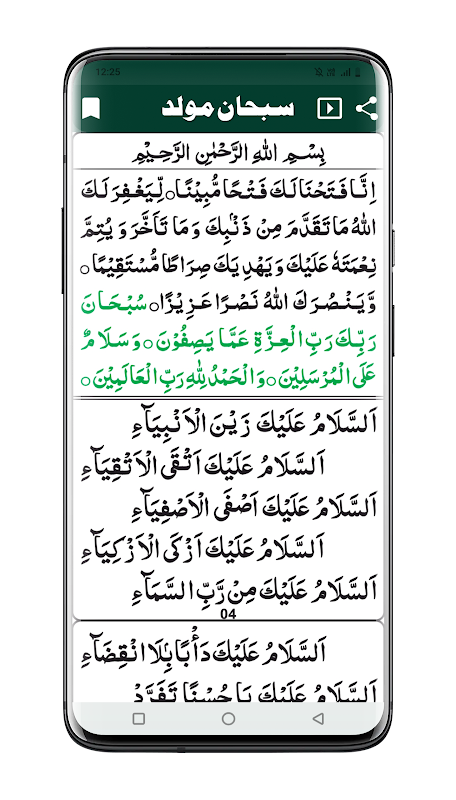 12:25
سبحان مولد
بِسْمِ اللهِ الرَّحْمٰنِ الرَّحِيْمِ
اِنَّا فَتَحْنَا لَكَ فَتْحًا مُّبِيْنًا○ لِّيَغْفِرَ لَكَ
اللهُ مَا تَقَدَّمَ مِنْ ذَنْۢبِكَ وَمَا تَاَخَّرَ وَ يُتِمَّ
نِعْمَتَهٗ عَلَيْكَ وَيَهْدِيَكَ صِرَاطًا مُّسْتَقِيْمًا○
وَّيَنْصُرَكَ اللهُ نَصْرًا عَزِيْزًا○ سُبْحَانَ
رَبِّكَ رَبِّ الْعِزَّةِ عَمَّا يَصِفُوْنَ○ وَسَلَامٌ
عَلَى الْمُرْسَلِيْنَ○ وَالْحَمْدُ لِلّٰهِ رَبِّ الْعَالَمِيْنَ○
اَلسَّلَامُ عَلَيْكَ زَيْنَ الْاَنْبِيَآءِ
اَلسَّلَامُ عَلَيْكَ اَتْقَى الْاَتْقِيَآءِ
اَلسَّلَامُ عَلَيْكَ اَصْفَى الْاَصْفِيَآءِ
اَلسَّلَامُ عَلَيْكَ اَزْكَى الْاَزْكِيَآءِ
اَلسَّلَامُ عَلَيْكَ مِنْ رَّبِّ السَّمَآءِ
04
اَلسَّلَامُ عَلَيْكَ دَأْبًا بِلَا انْقِضَآءِ
اَلسَّلَامُ عَلَيْكَ يَا حُسْنًا تَفَرَّدْ